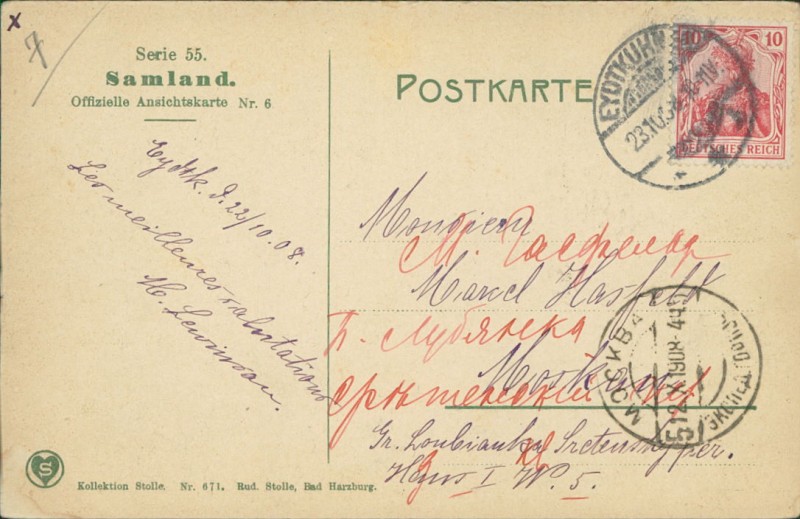 x
7
Serie 55.
Samland.
Offizielle Ansichtskarte Nr. 6
POSTKARTE
EYDTKUHNEN
23.10.08
10 10
DEUTSCHES REICH
Eydtk. d. 22/10.08.
Les meilleures salutations
M. Lewinson.
Monsieur
М. Гасфельд
Marcel Hasfeld
Б. Лубянка
Moskau
Срѣтенскій пер.
Gr. Loubianka, Sretensky per.
Haus I W. 5.
МОСКВА
1908
S
Kollektion Stolle. Nr. 671. Rud. Stolle, Bad Harzburg.